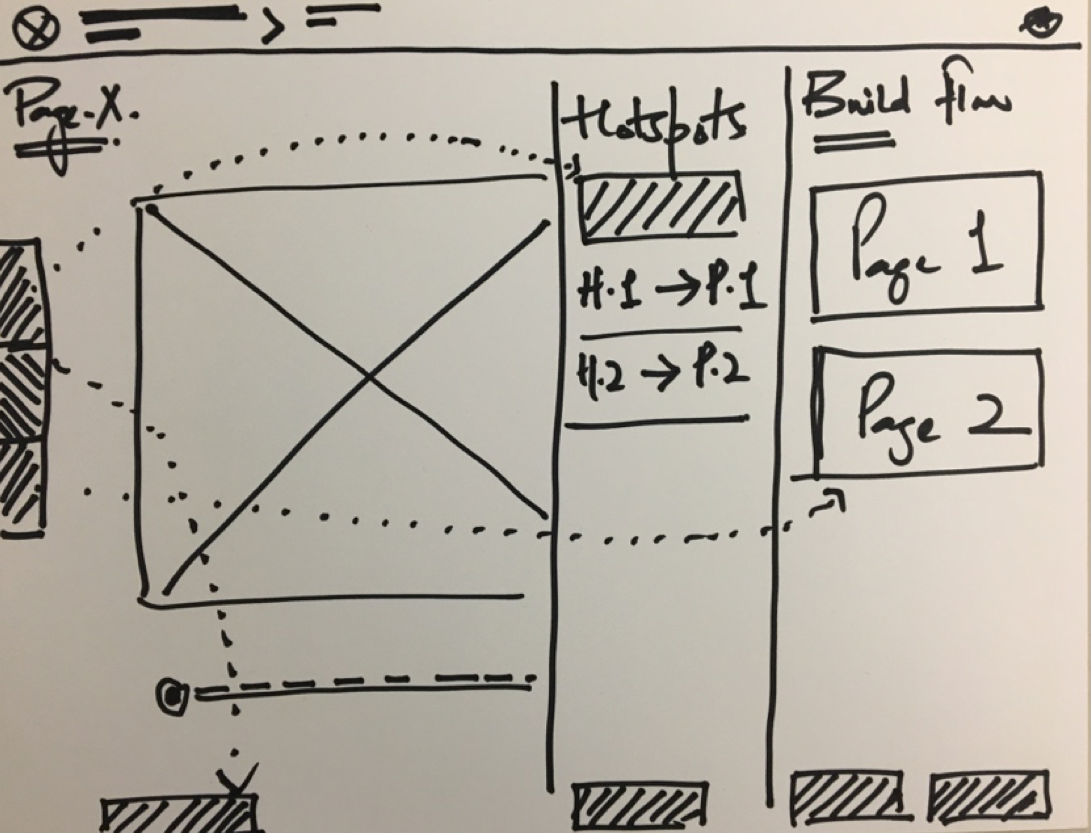 Page-X.
Hotspots
H.1 → P.1
H.2 → P.2
Build flow
Page 1
Page 2